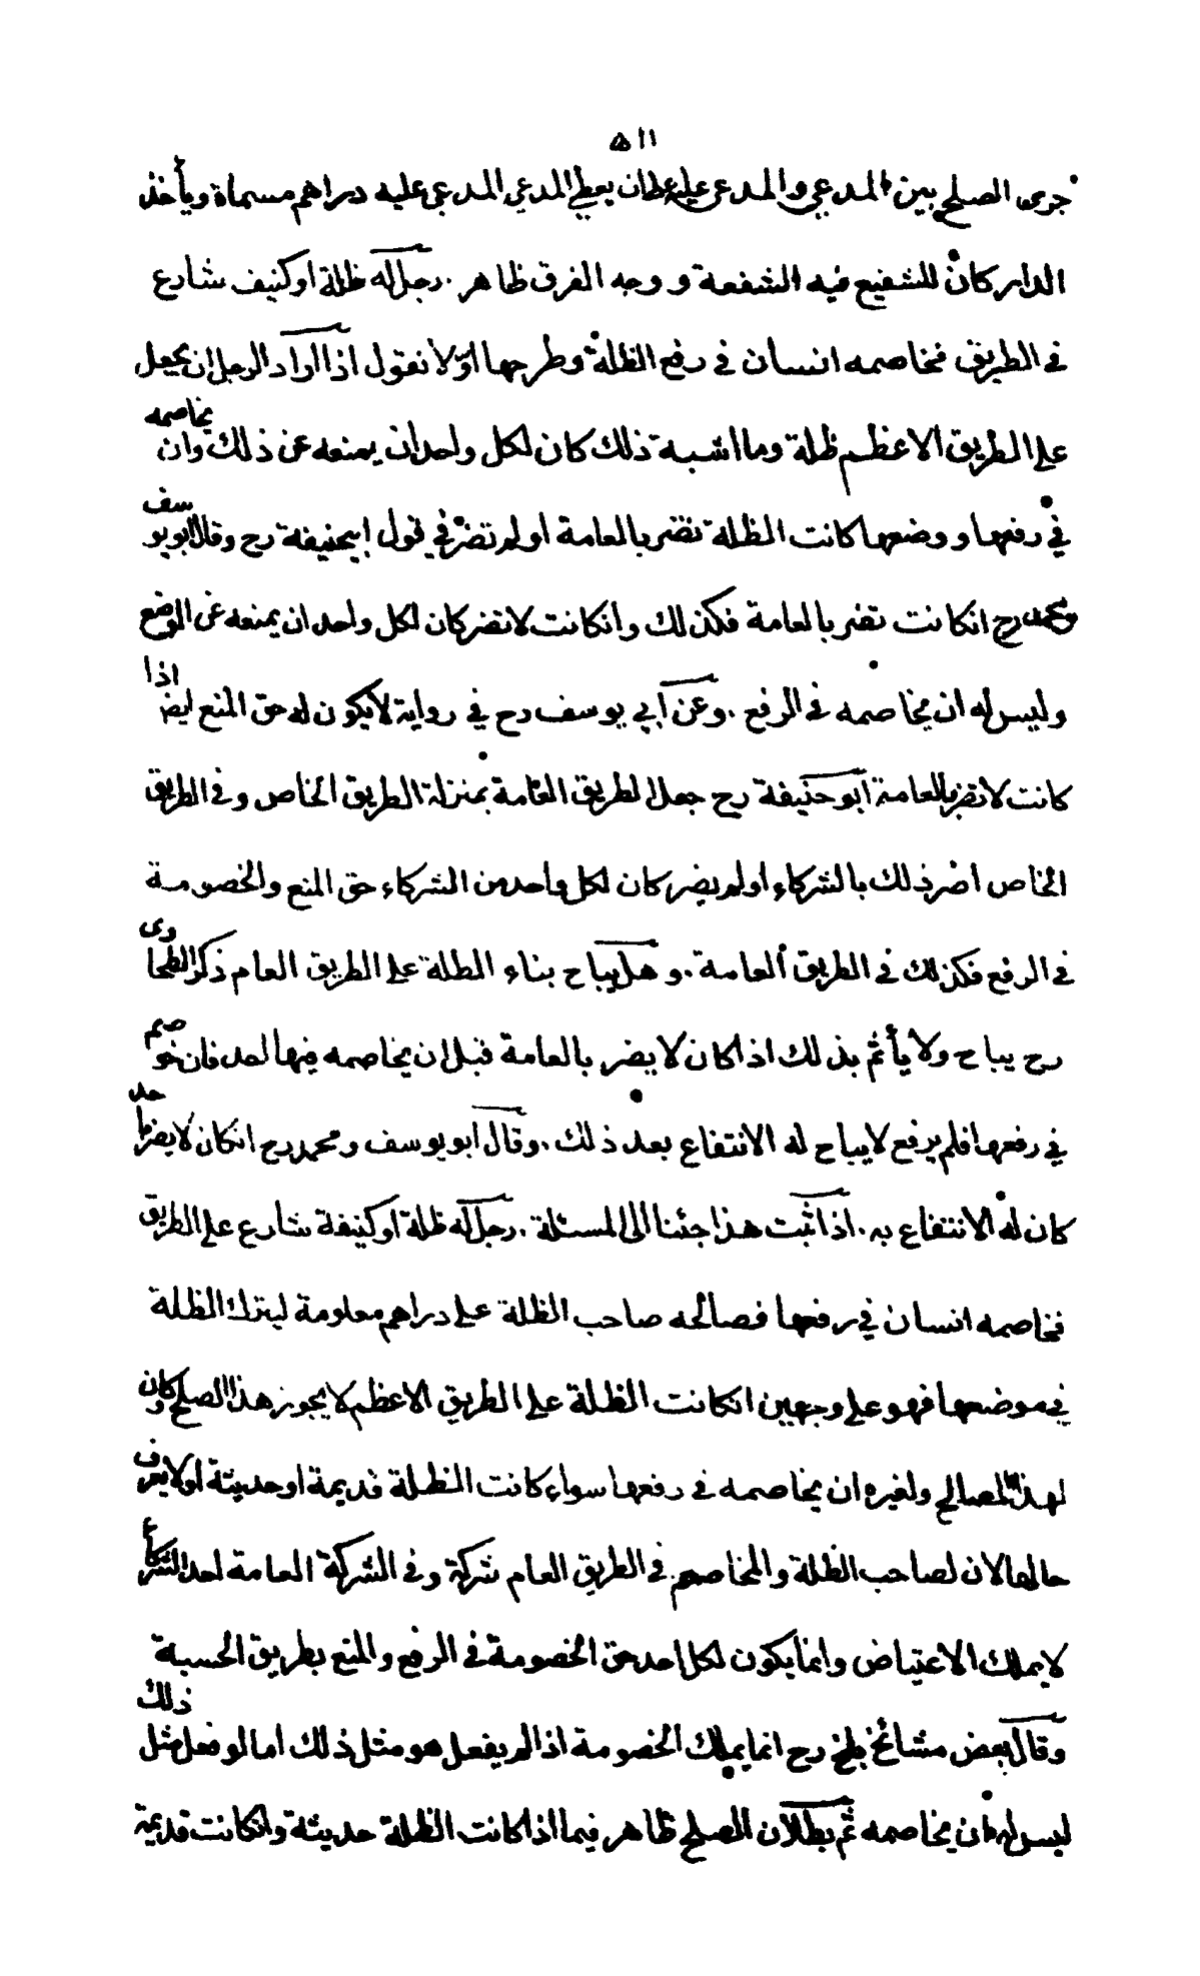 ٥١١
جرى الصلح بين المدعي والمدعى عليه على ان يعطي المدعي المدعى عليه دراهم مسماة ويأخذ
الدار كان للشفيع فيه الشفعة ووجه الفرق ظاهر . رجل له ظلة او كنيف شارع
في الطريق فخاصمه انسان في رفع الظلة وطرحها اولا نقول اذا اراد الرجل ان يجعل
على الطريق الاعظم ظلة وما اشبه ذلك كان لكل واحد ان يمنعه عن ذلك وان يخاصمه
في رفعها ووضعها كانت الظلة تضر بالعامة او لم تضر في قول ابيحنيفة رح وقال ابو يوسف
ومحمد رح انكانت تضر بالعامة فكذلك وانكانت لا تضر كان لكل واحد ان يمنعه عن الوضع
وليس له ان يخاصمه في الرفع . وعن ابي يوسف رح في رواية لا يكون له حق المنع ايضا اذا
كانت لا تضر بالعامة ابو حنيفة رح جعل الطريق العامة بمنزلة الطريق الخاص وفي الطريق
الخاص اضر ذلك بالشركاء او لم يضر كان لكل واحد من الشركاء حق المنع والخصومة
في الرفع فكذلك في الطريق العامة . وهل يباح بناء الظلة على الطريق العام ذكر الطحاوى
رح يباح ولا يأثم بذلك اذا كان لا يضر بالعامة قبل ان يخاصمه فيها احد فان خوصم
في رفعها فلم يرفع لا يباح له الانتفاع بعد ذلك . وقال ابو يوسف ومحمد رح انكان لا يضر باحد
كان له الانتفاع به . اذا ثبت هذا جئنا الى المسئلة . رجل له ظلة او كنيفة شارع على الطريق
فخاصمه انسان في رفعها فصالحه صاحب الظلة على دراهم معلومة ليترك الظلة
في موضعها فهو على وجهين انكانت الظلة على الطريق الاعظم لا يجوز هذا الصلح وكان
لهذا المصالح ولغيره ان يخاصمه في رفعها سواء كانت الظلة قديمة او حديثة او لا يعرف
حالها لان لصاحب الظلة والمخاصم في الطريق العام شركة وفي الشركة العامة احد الشركاء
لا يملك الاعتياض وانما يكون لكل احد حق الخصومة في الرفع والمنع بطريق الحسبة
وقال بعض مشائخ بلخ رح انما يملك الخصومة اذا لم يفعل هو مثل ذلك اما لو فعل مثل ذلك
ليس له ان يخاصمه ثم بطلان الصلح ظاهر فيما اذا كانت الظلة حديثة وانكانت قديمة